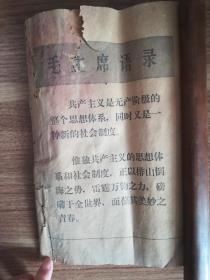 毛主席语录
共产主义是无产阶级的
整个思想体系，同时又是一
种新的社会制度。
惟独共产主义的思想体
系和社会制度，正以排山倒
海之势，雷霆万钧之力，磅
礴于全世界，而葆其美妙之
青春。